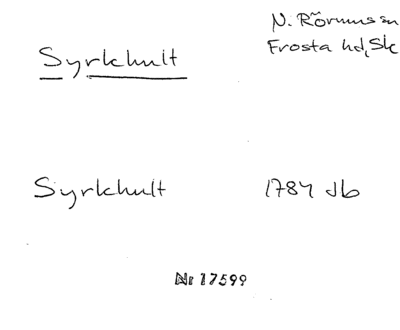 Syrkhult
N. Rörums sn
Frosta hd, Sk
Syrkhult
1784 Jb
Nr 17599